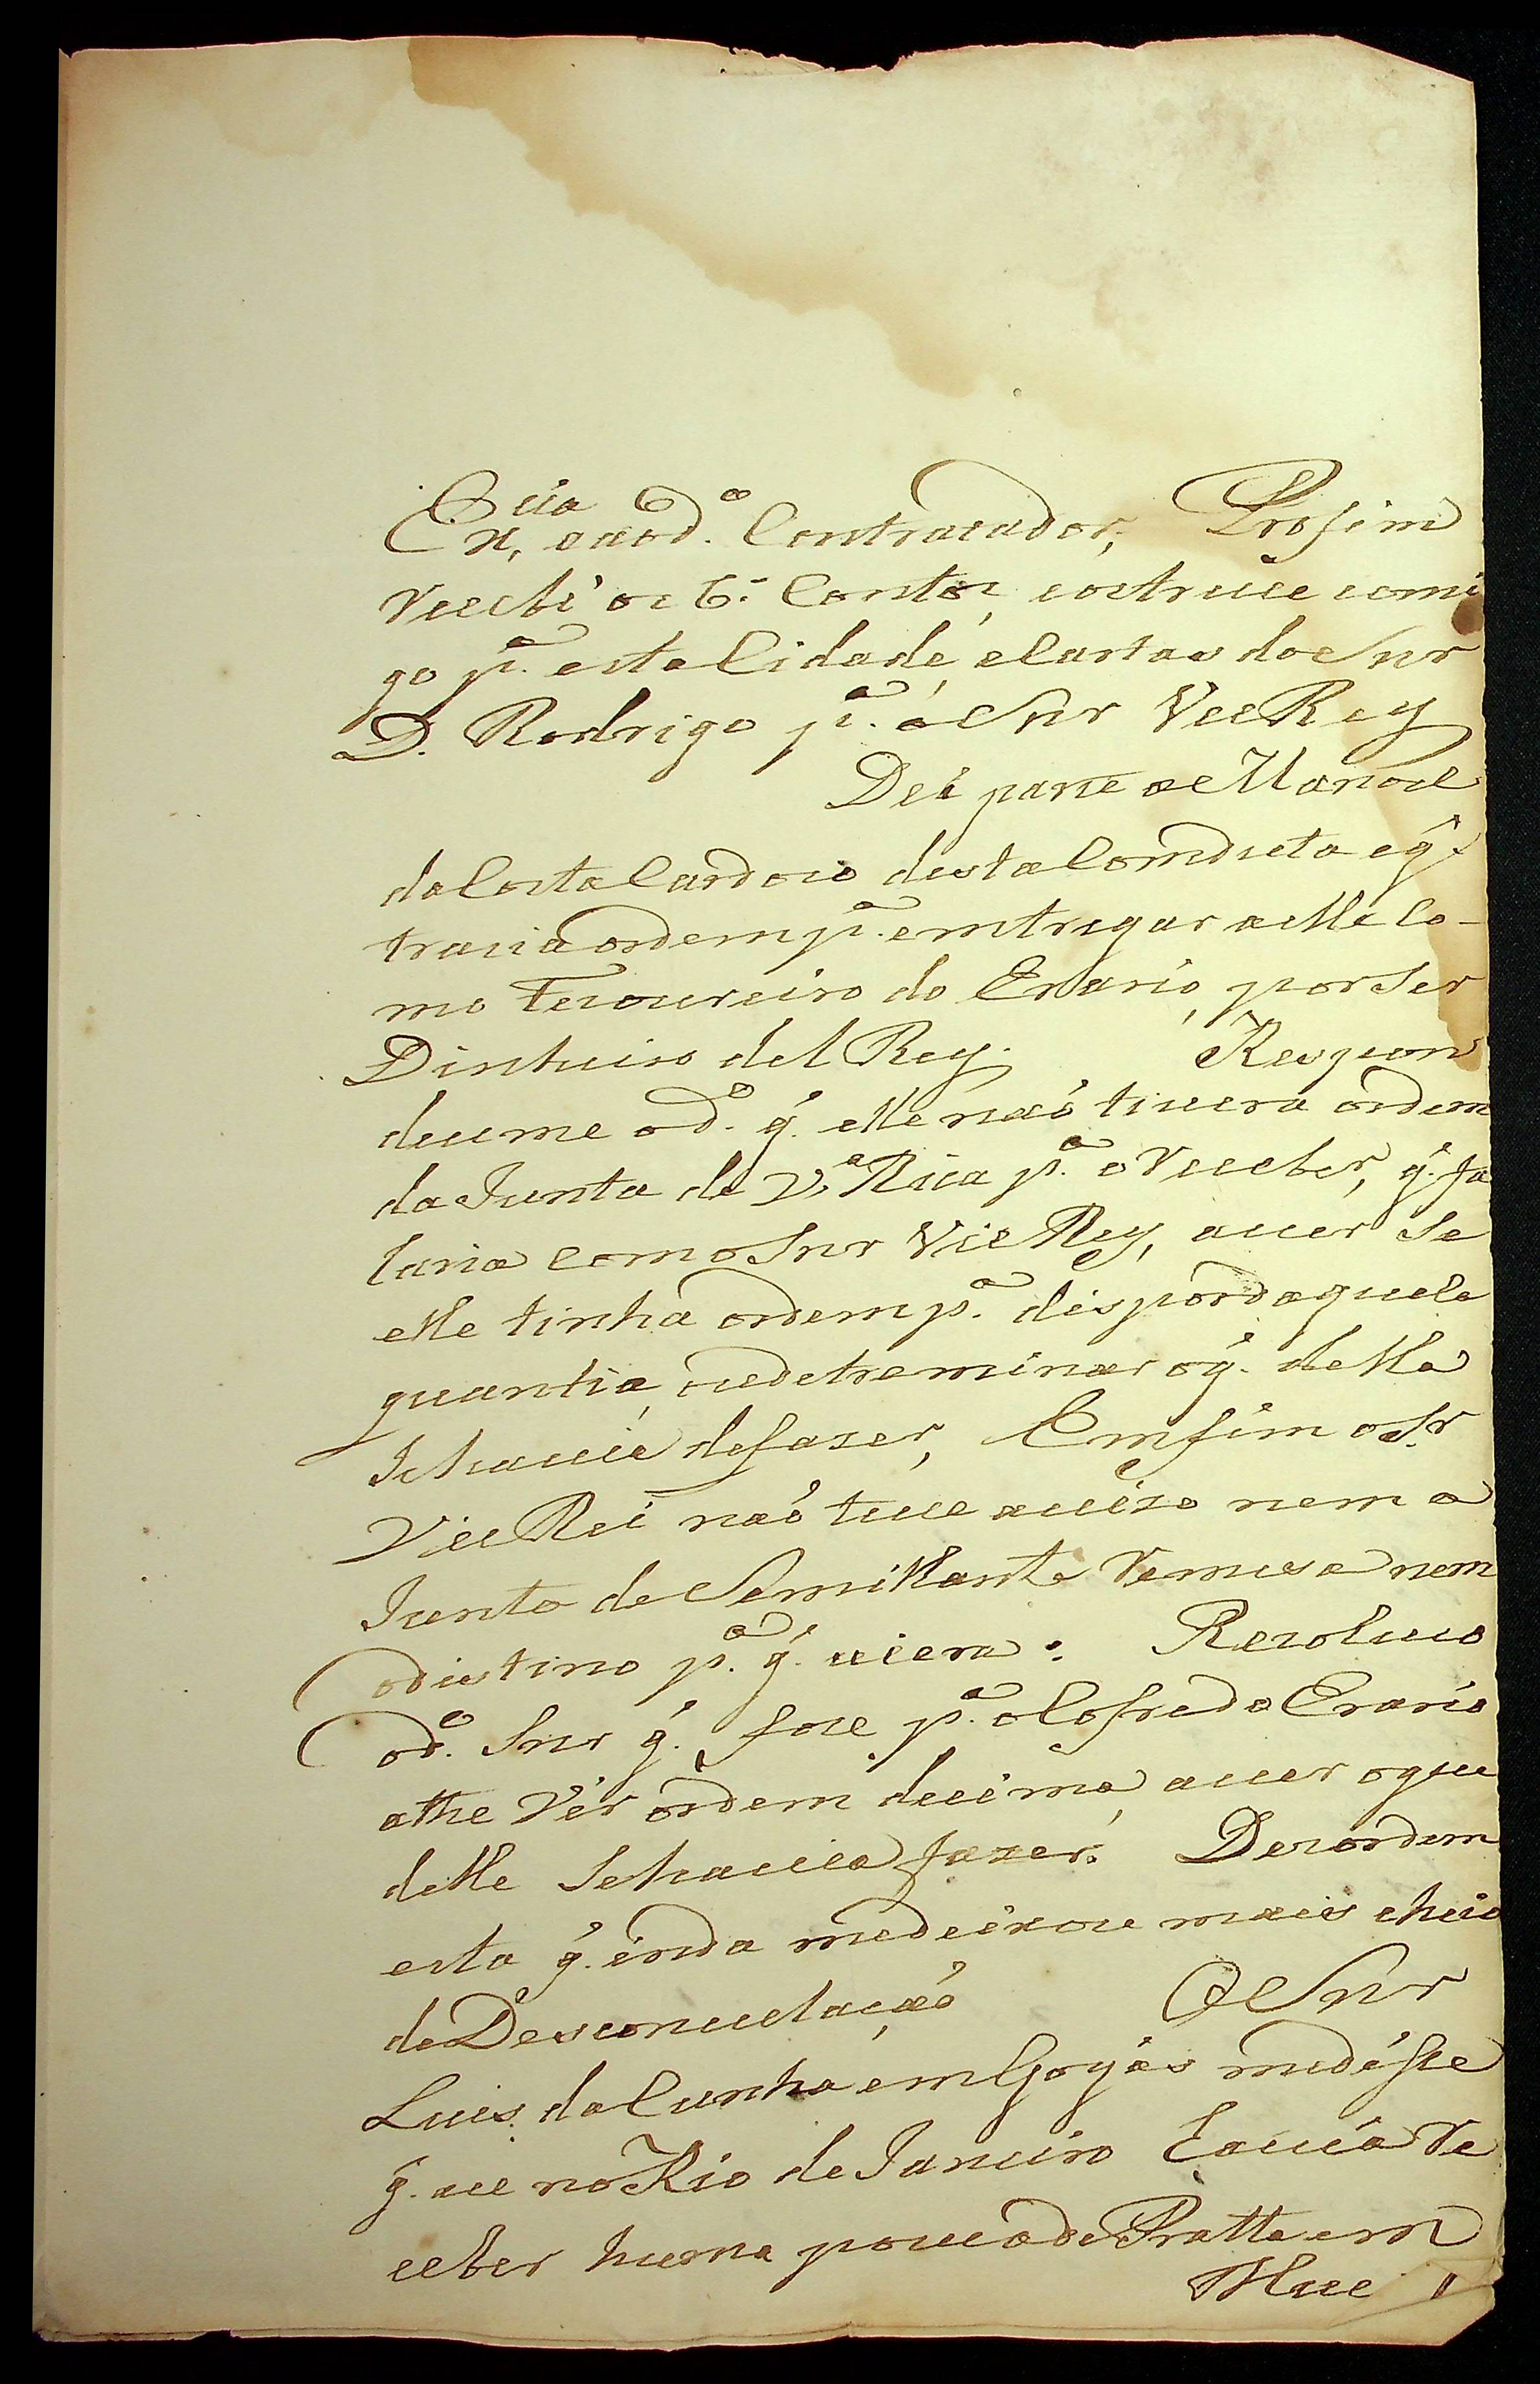 Ex.cia e aod.o Contratador, Por fim
Recebi os 6.= Contos, eos truce comi
go p.a esta Cidade, e Cartas do Snr
D. Rodrigo p.a o Snr VeeRey
Dei parte a Manoel
da Costa Cardoso desta Comducta e q̃
trasia ordem p.a emtregar a elle Co-
mo Tesoureiro do Erario, por ser
Dinheiro del Rey. Respon
deume od.o q̃. elle naõ tivera ordem
da Junta de V.a Rica p.a o Receber, q̃. fa
laria com o Snr Vice Rey, aver se
elle tinha ordem p.a dispor daquela
quantia, ou detreminar oq̃. della
se havia de faser, Emfim o Sr
ViceRei naõ teve avizo nem a
Junta de Semilhante Remesa nem
odestino p.a q̃. viera. Rezolveo
od.o Snr q̃. fose p.a o Cofre do Erario
athe Vér ordem decima, a ver o que
delle Sehavia fazer. Dezordem
esta q̃. inda medeixou mais cheio
de Desconsulaçaõ O Snr
Luis da Cunha em Goyás medisse
q̃. eu no Rio de Janeiro havia Re
ceber huma pouca de Pratta em